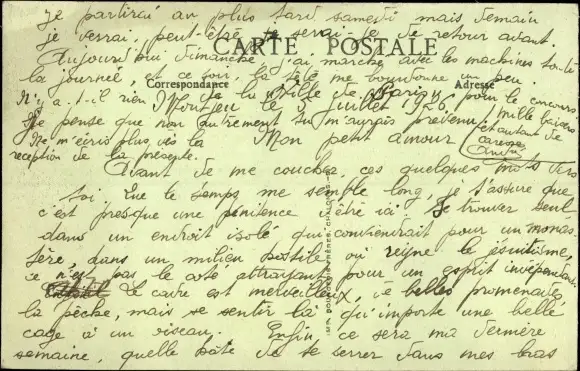 je partirai au plus tard samedi mais demain
je verrai, peut-être je serai-je de retour avant.
CARTE POSTALE
Aujourd'hui dimanche j'ai marché avec les machines toute
la journée, et ce soir, la tête me bourdonne un peu.
Correspondance
Adresse
N'y a-t-il rien de la Ville de Paris pour le concours
Montjeu le 5 juillet 1926
Je pense que non autrement tu m'aurais prévenu
mille baisers
et autant de
caresses
André
Ne m'écris plus dès la
réception de la présente.
Mon petit amour
Avant de me coucher, ces quelques mots vers
toi. Que le temps me semble long, je t'assure que
c'est presque une pénitence d'être ici. Se trouver seul
dans un endroit isolé qui conviendrait pour un monas-
tère, dans un milieu hostile où règne le jésuitisme,
ce n'est pas le côté attrayant pour un esprit indépendant.
Le cadre est merveilleux, de belles promenades
la pêche, mais se sentir là qu'importe une belle
cage à un oiseau. Enfin ce sera ma dernière
semaine, quelle hâte de te serrer dans mes bras